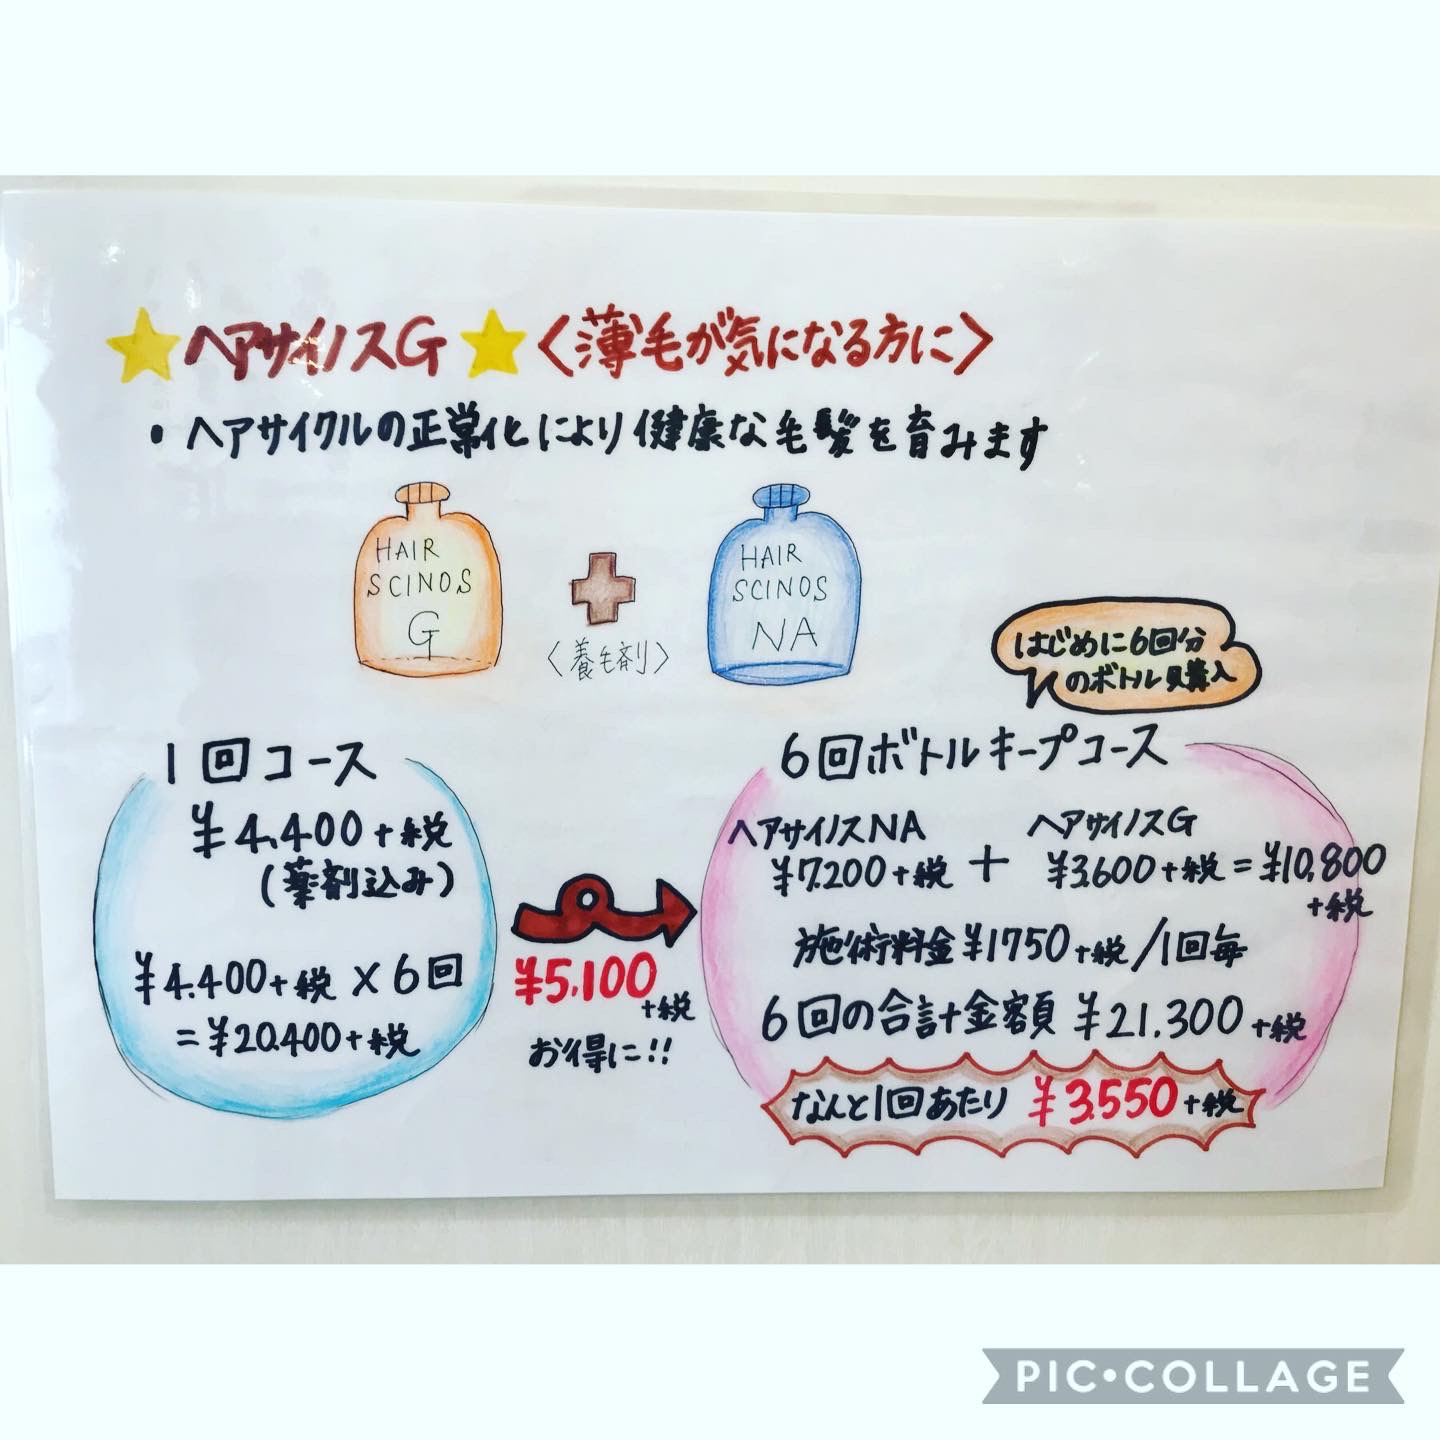 ヘアサイノスG 〈薄毛が気になる方に〉
・ヘアサイクルの正常化により健康な毛髪を育みます
HAIR
SCINOS
G
〈養毛剤〉
HAIR
SCINOS
NA
はじめに6回分
のボトル購入
1回コース
¥4,400+税
(薬剤込み)
¥4.400+税×6回
=¥20.400+税
¥5.100
+税
お得に!!
6回ボトルキープコース
ヘアサイノスNA ヘアサイノスG
¥7.200+税 + ¥3.600+税=¥10,800
+税
施術料金¥1750+税/1回毎
6回の合計金額 ¥21.300+税
なんと1回あたり ¥3.550+税
PIC•COLLAGE